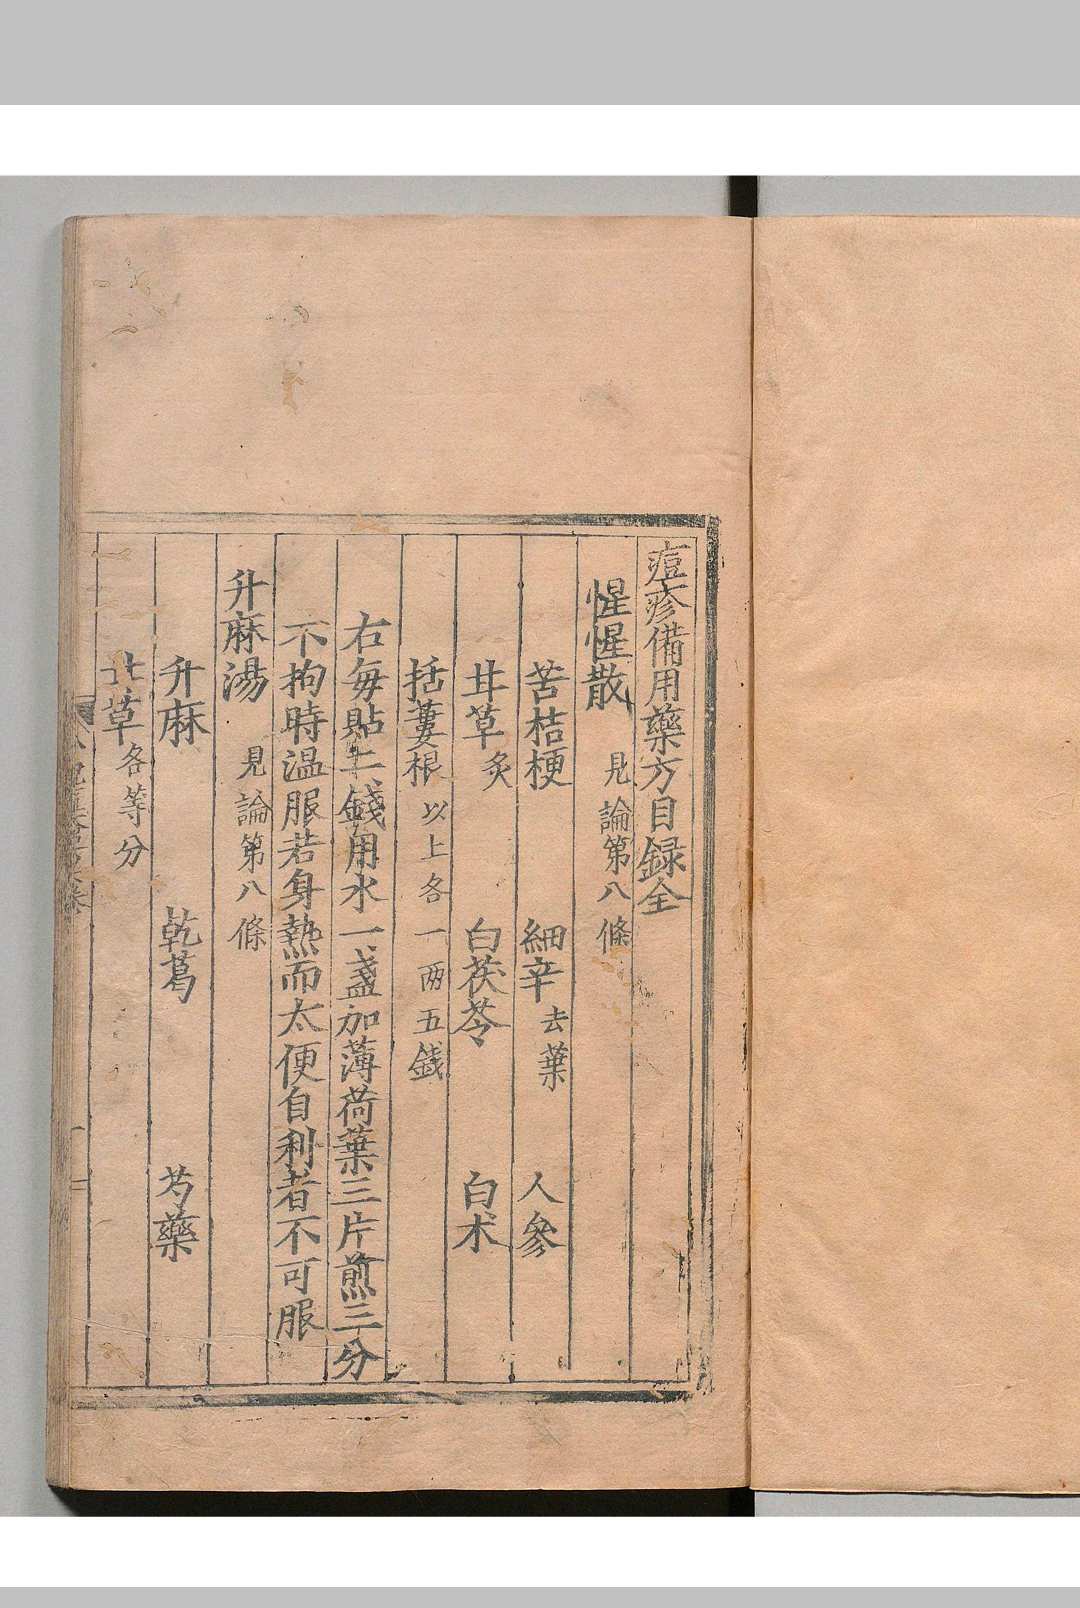 痘疹備用藥方目録全
惺惺散 見論第八條
苦桔梗 細辛去葉 人參
甘草炙 白茯苓 白术
括蔞根以上各一两五錢
右每貼二錢用水一盞加薄荷葉三片煎三分
不拘時温服若身熱而太便自利者不可服
升麻湯 見論第八條
升麻 乾葛 芍藥
甘草各等分